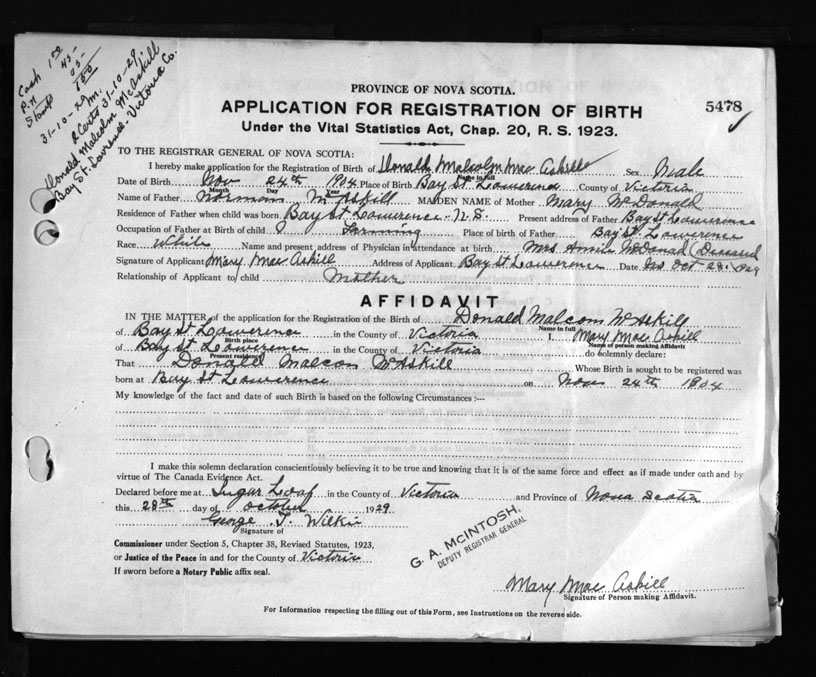 Cash 1.00
P.N 45-
Stamps 55-
1.00
31-10-29 M.
R Cert 31-10-29
Donald Malcolm McAskill
Bay St. Lawrence - Victoria Co.
PROVINCE OF NOVA SCOTIA.
APPLICATION FOR REGISTRATION OF BIRTH 5478
Under the Vital Statistics Act, Chap. 20, R. S. 1923.
TO THE REGISTRAR GENERAL OF NOVA SCOTIA:
I hereby make application for the Registration of Birth of Donald Malcolm Mac Askill Sex Male
Name in full
Date of Birth Nov 24th 1904 Place of Birth Bay St Lawerence County of Victoria
Month Day Year
Name of Father Norman McAskill MAIDEN NAME of Mother Mary McDonald
Residence of Father when child was born Bay St Lawerence N.S. Present address of Father Bay St Lawerence
Occupation of Father at Birth of child Farming Place of birth of Father Bay St. Lawerence
Race White Name and present address of Physician in attendance at birth Mrs. Annie McDonad (Deceased
Signature of Applicant Mary Mac Askill Address of Applicant Bay St Lawerence Date Oct 28. 1929
Relationship of Applicant to child Mother
AFFIDAVIT
IN THE MATTER of the application for the Registration of the Birth of Donald Malcom McAskill
Name in full
of Bay St Lawerence in the County of Victoria I, Mary Mac Askill
Birth place Name of person making Affidavit
of Bay St. Lawerence in the County of Victoria do solemnly declare:
Present residence
That Donald Malcom McAskill Whose Birth is sought to be registered was
born at Bay St Lawerence on Nov 24th 1904
My knowledge of the fact and date of such Birth is based on the following Circumstances:--
I make this solemn declaration conscientiously believing it to be true and knowing that it is of the same force and effect as if made under oath and by
virtue of The Canada Evidence Act.
Declared before me at Sugar Loaf in the County of Victoria and Province of Nova Scotia
this 28th day of October 1929
George T. Wilkie
Signature of
Commissioner under Section 5, Chapter 38, Revised Statutes, 1923,
or Justice of the Peace in and for the County of Victoria
If sworn before a Notary Public affix seal.
G. A. McINTOSH,
DEPUTY REGISTRAR GENERAL
Mary Mac Askill
Signature of Person making Affidavit.
For Information respecting the filling out of this Form, see Instructions on the reverse side.